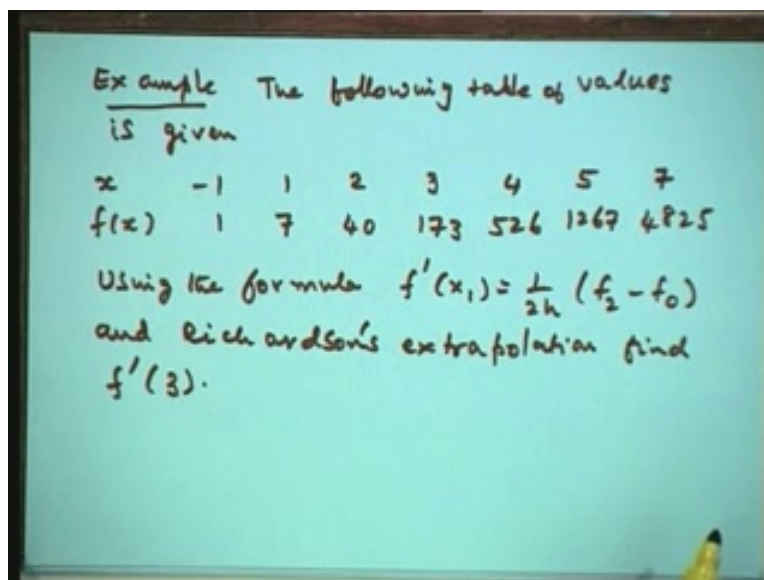 Example The following table of values
is given
x -1 1 2 3 4 5 7
f(x) 1 7 40 173 526 1267 4825
Using the formula f'(x₁) = 1/2h (f₂ - f₀)
and Richardson's extrapolation find
f'(3).